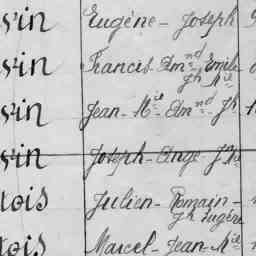 sin Eugène - Joseph
sin Francis Am^nd Emile
J^h M^ie
sin Jean - M^ie Am^nd J^h
sin Joseph - Ange - J^h M^ie
tois Julien - Romain -
J^h Eugène
tois Marcel - Jean - M^ie